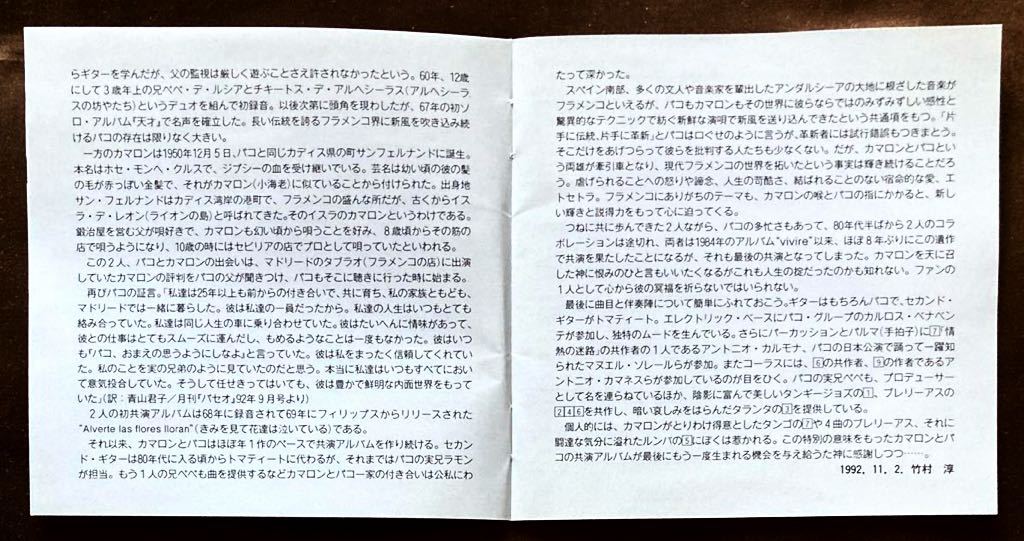 らギターを学んだが、父の監視は厳しく遊ぶことさえ許されなかったという。60年、12歳
にして3歳年上の兄ペペ・デ・ルシアとチキートス・デ・アルヘシーラス(アルヘシーラ
スの坊やたち)というデュオを組んで初録音。以後次第に頭角を現わしたが、67年の初ソ
ロ・アルバム『天才』で名声を確立した。長い伝統を誇るフラメンコ界に新風を吹き込み続
けるパコの存在は限りなく大きい。
一方のカマロンは1950年12月5日、パコと同じカディス県の町サンフェルナンドに誕生。
本名はホセ・モンヘ・クルスで、ジプシーの血を受け継いでいる。芸名は幼い頃の彼の髪
の毛が赤っぽい金髪で、それがカマロン(小海老)に似ていることから付けられた。出身地
サン・フェルナンドはカディス湾岸の港町で、フラメンコの盛んな所だが、古くからイス
ラ・デ・レオン(ライオンの島)と呼ばれてきた。そのイスラのカマロンというわけである。
鍛治屋を営む父が唄好きで、カマロンも幼い頃から唄うことを好み、8歳頃からその筋の
店で唄うようになり、10歳の時にはセビリアの店でプロとして唄っていたといわれる。
この2人、パコとカマロンの出会いは、マドリードのタブラオ(フラメンコの店)に出演
していたカマロンの評判をパコの父が聞きつけ、パコもそこに聴きに行った時に始まる。
再びパコの証言。「私達は25年以上も前からの付き合いで、共に育ち、私の家族ともども、
マドリードでは一緒に暮らした。彼は私達の一員だったから。私達の人生はいつもとても
絡み合っていた。私達は同じ人生の車に乗り合わせていた。彼はたいへんに情味があって、
彼との仕事はとてもスムーズに運んだし、もめるようなことは一度もなかった。彼はいつ
も『パコ、おまえの思うようにしなよ』と言っていた。彼は私をまったく信頼してくれてい
た。私のことを実の兄弟のように見ていたのだと思う。本当に私達はいつもすべてにおい
て意気投合していた。そうして任せきってはいても、彼は豊かで鮮明な内面世界をもって
いた」(訳：青山君子／月刊『パセオ』92年9月号より)
2人の初共演アルバムは68年に録音されて69年にフィリップスからリリースされた
“Alverte las flores lloran”(きみを見て花達は泣いている)である。
それ以来、カマロンとパコはほぼ年1作のペースで共演アルバムを作り続ける。セカン
ド・ギターは80年代に入る頃からトマティートに代わるが、それまではパコの実兄ラモン
が担当。もう1人の兄ペペも曲を提供するなどカマロンとパコ一家の付き合いは公私にわ
たって深かった。
スペイン南部、多くの文人や音楽家を輩出したアンダルシーアの大地に根ざした音楽が
フラメンコといえるが、パコもカマロンもその世界に彼らならではのみずみずしい感性と
驚異的なテクニックで紡ぐ新鮮な演唱で新風を送り込んできたという共通項をもつ。「片
手に伝統、片手に革新」とパコは口ぐせのように言うが、革新者には試行錯誤もつきまとう。
そこだけをあげつらって彼らを批判する人たちも少なくない。だが、カマロンとパコとい
う両雄が牽引車となり、現代フラメンコの世界を拓いたという事実は輝き続けることだろ
う。虐げられることへの怒りや諦念、人生の苛酷さ、結ばれることのない宿命的な愛、エ
トセトラ。フラメンコにありがちのテーマも、カマロンの喉とパコの指にかかると、新し
い輝きと説得力をもって心に迫ってくる。
つねに共に歩んできた2人ながら、パコの多忙さもあって、80年代半ばから2人のコラ
ボレーションは途切れ、両者は1984年のアルバム“vivire”以来、ほぼ8年ぶりにこの遺作
で共演を果たしたことになるが、それも最後の共演となってしまった。カマロンを天に召
した神に恨みのひと言もいいたくなるがこれも人生の掟だったのかも知れない。ファンの
1人として心から彼の冥福を祈らないではいられない。
最後に曲目と伴奏陣について簡単にふれておこう。ギターはもちろんパコで、セカンド・
ギターがトマティート。エレクトリック・ベースにパコ・グループのカルロス・ベナベン
テが参加し、独特のムードを生んでいる。さらにパーカッションとパルマ(手拍子)に[7]「情
熱の迷路」の共作者の1人であるアントニオ・カルモナ、パコの日本公演で踊って一躍知
られたマヌエル・ソレールらが参加。またコーラスには、[6]の共作者、[9]の作者であるア
ントニオ・カマネスらが参加しているのが目をひく。パコの実兄ペペも、プロデューサー
として名を連ねているほか、陰影に富んで美しいタンギージョスの[1]、ブレリーアスの
[2][4][6]を共作し、暗い哀しみをはらんだタランタの[3]を提供している。
個人的には、カマロンがとりわけ得意としたタンゴの[7]や4曲のブレリーアス、それに
闊達な気分に溢れたルンバの[5]にぼくは惹かれる。この特別の意味をもったカマロンとパ
コの共演アルバムが最後にもう一度生まれる機会を与え給うた神に感謝しつつ……。
1992. 11. 2. 竹村　淳